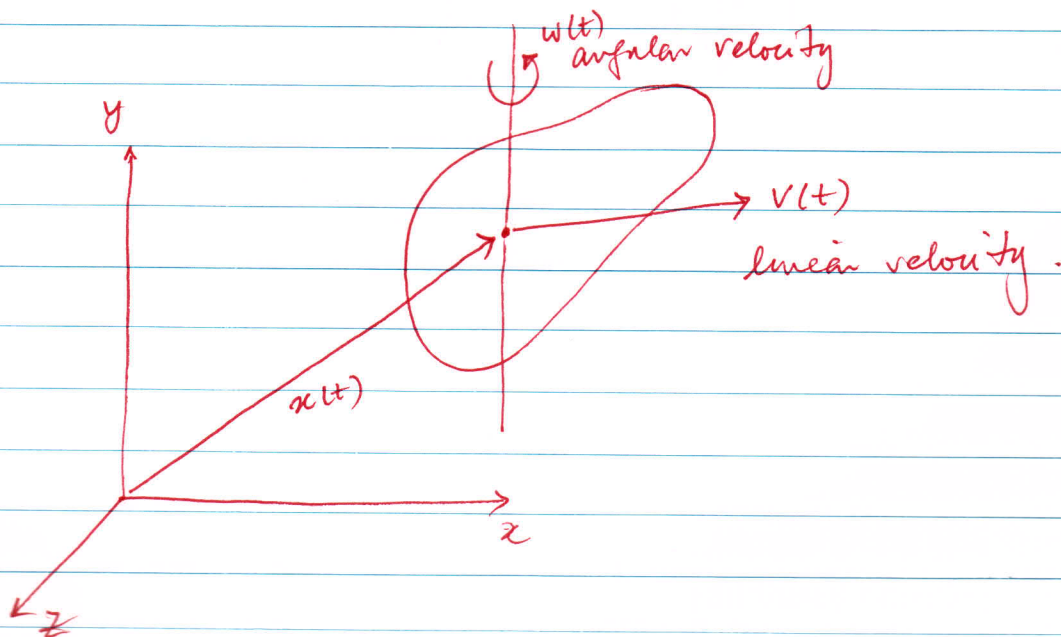 ω(t)
angular velocity
y
v(t)
linear velocity.
x(t)
x
z